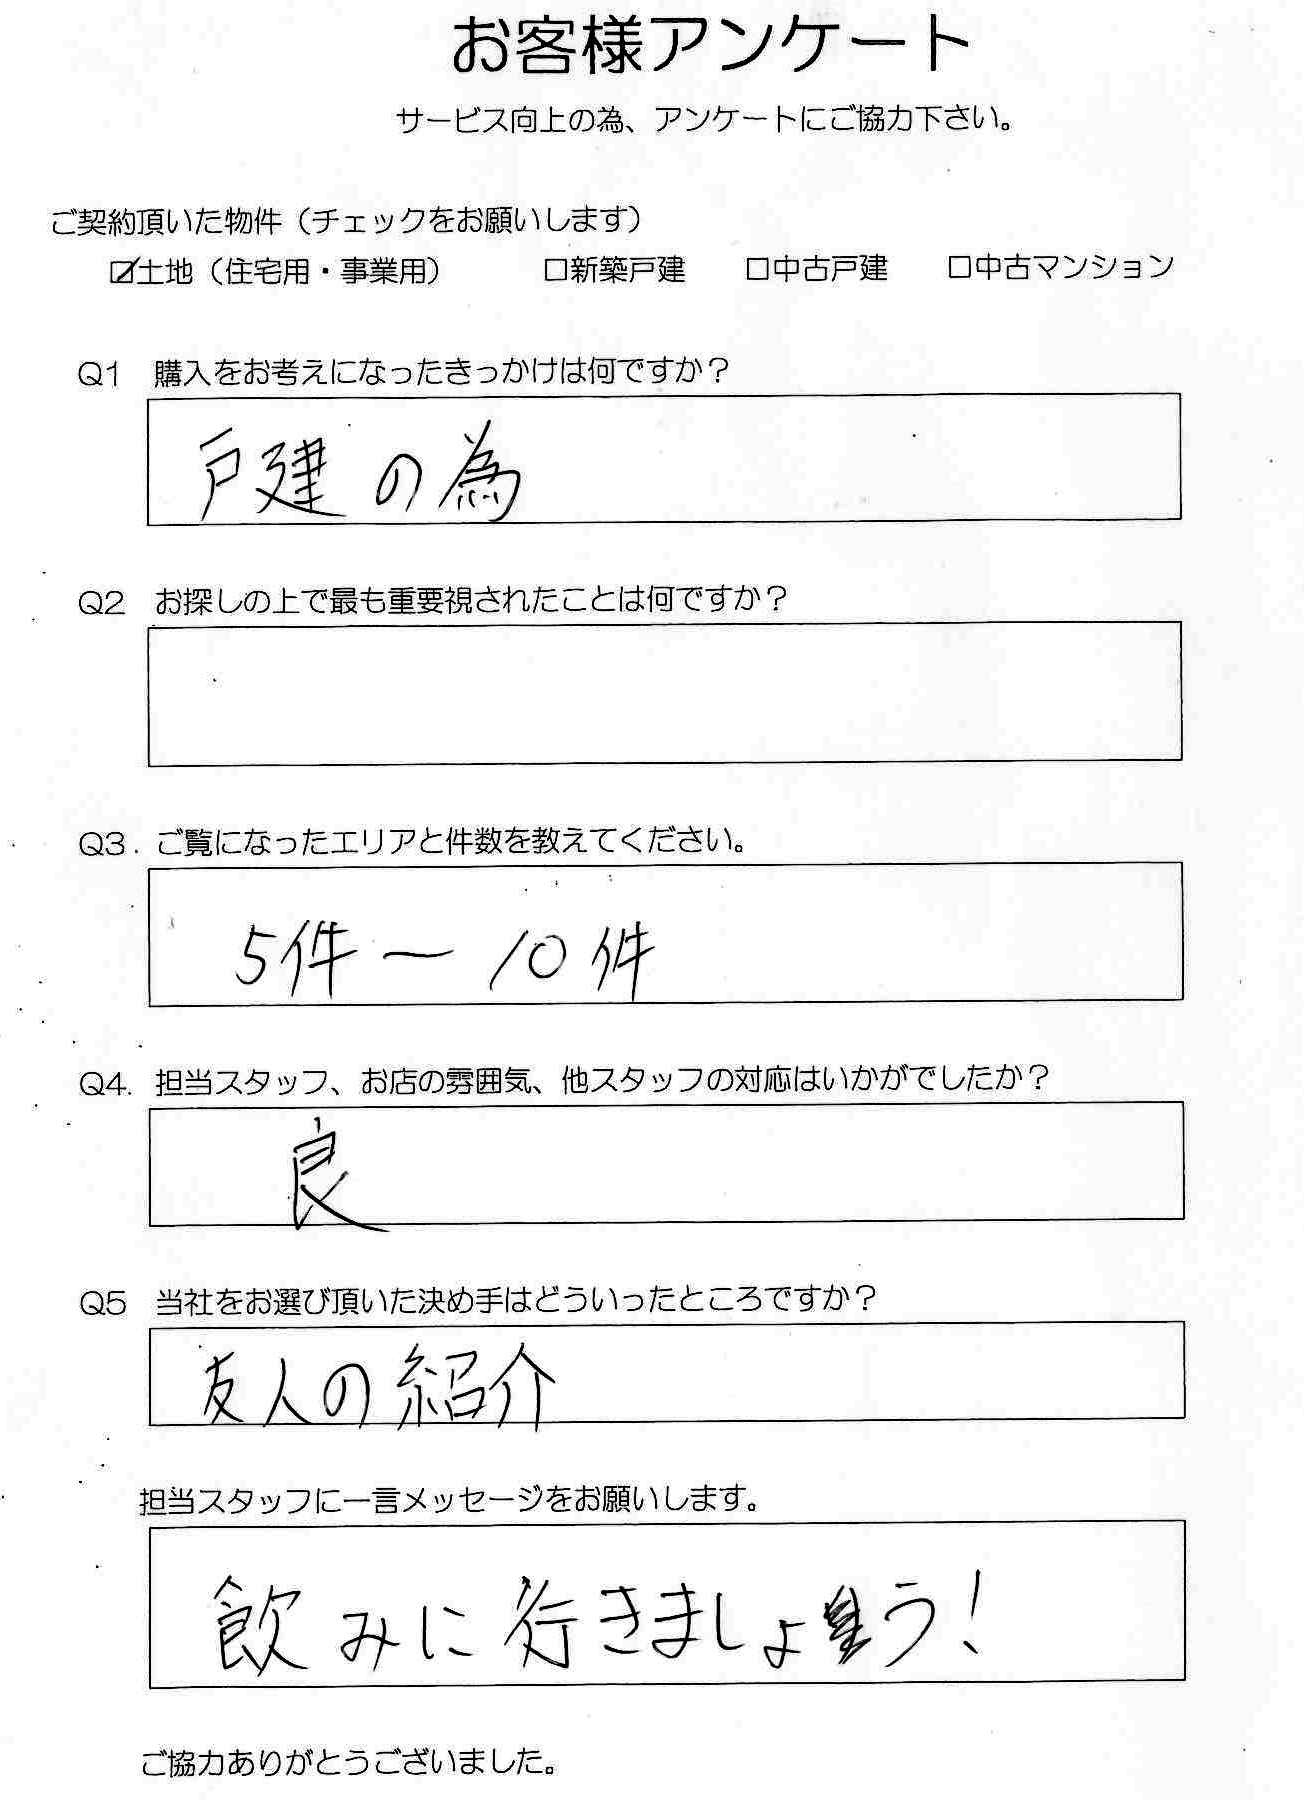 お客様アンケート
サービス向上の為、アンケートにご協力下さい。
ご契約頂いた物件（チェックをお願いします）
☑土地（住宅用・事業用） □新築戸建 □中古戸建 □中古マンション
Q1 購入をお考えになったきっかけは何ですか？
戸建の為
Q2 お探しの上で最も重要視されたことは何ですか？
Q3. ご覧になったエリアと件数を教えてください。
5件～10件
Q4. 担当スタッフ、お店の雰囲気、他スタッフの対応はいかがでしたか？
良
Q5 当社をお選び頂いた決め手はどういったところですか？
友人の紹介
担当スタッフに一言メッセージをお願いします。
飲みに行きましょう！
ご協力ありがとうございました。